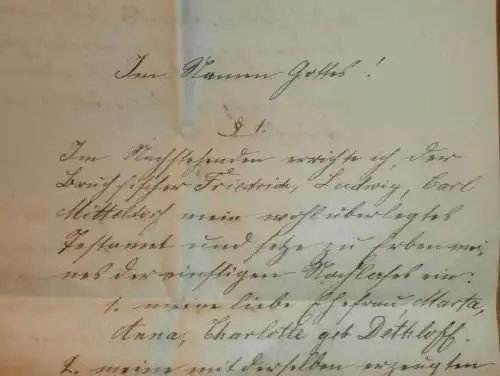 Im Namen Gottes!
§ 1.
Im Nachstehenden errichte ich, der
Bruchfischer Friedrich, Ludwig, Carl
Mitteldorf mein wohlüberlegtes
Testament und setze zu Erben mei-
nes dereinstigen Nachlasses ein:
1. meine liebe Ehefrau, Marta,
Anna, Charlotte geb Dethloff.
2. meine mit derselben erzeugten